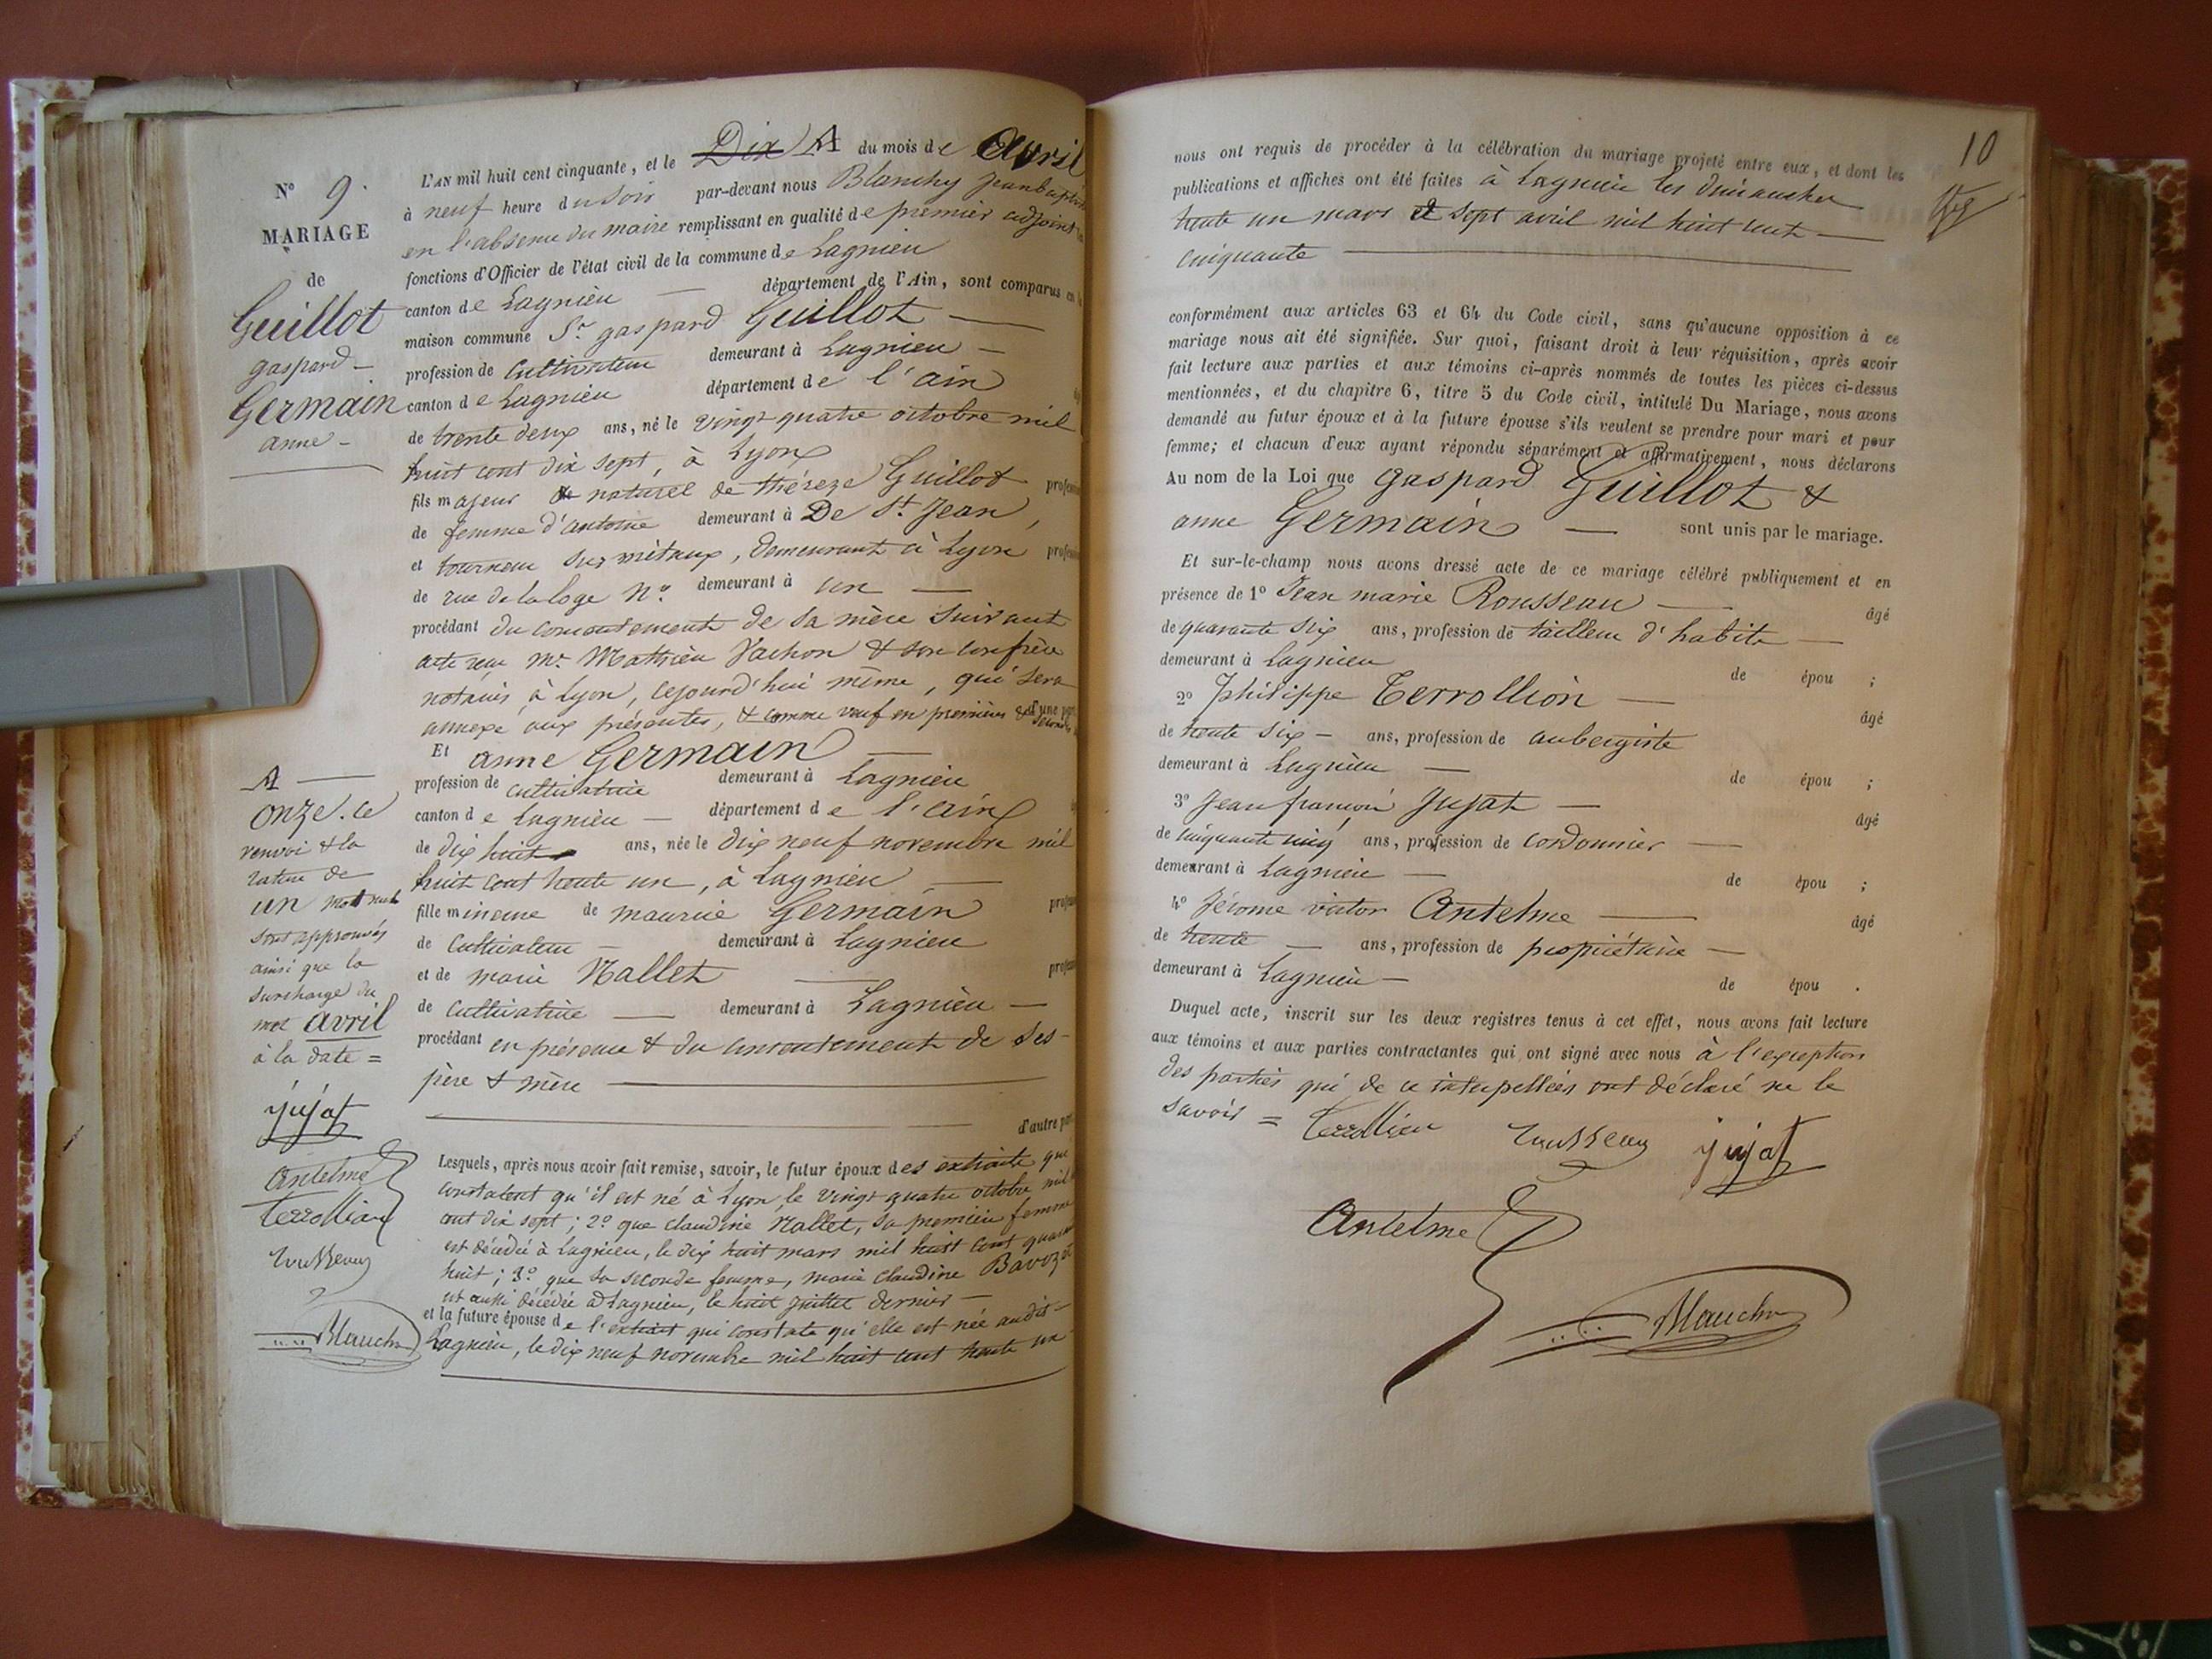 N° 9.
MARIAGE
de
Guillot
gaspard -
Germain
anne -
L'AN mil huit cent cinquante, et le Dix A du mois de Avril
à neuf heure du soir par-devant nous Blanchy Jean baptiste
en l'absence du maire remplissant en qualité de premier adjoint
fonctions d'Officier de l'état civil de la commune de Lagnieu
canton de Lagnieu — département de l'Ain, sont comparus en
maison commune Sr. gaspard Guillot —
profession de Cultivateur demeurant à Lagnieu -
canton de Lagnieu département de l'ain
de trente deux ans, né le vingt quatre octobre mil
huit cent dix sept, à Lyon
fils majeur naturel de théreze Guillot
de femme d'antoine demeurant à De St. Jean,
et tourneur sur métaux, demeurant à Lyon
de rue de la loge N°. demeurant à un —
procédant du consentement de sa mère suivant
acte reçu Me. Mathieu Vachon & son confrère
notaires à Lyon, cejourd'hui même, qui sera
annexé aux présentes, & comme veuf en premières & d'une part
secondes
Et anne Germain —
profession de cultivatrice demeurant à Lagnieu
canton de Lagnieu — département de l'ain
de dix huit ans, née le dix neuf novembre mil
huit cent trente un, à Lagnieu —
fille mineure de maurice Germain
de Cultivateur — demeurant à Lagnieu
et de marie Nallet —
de Cultivatrice — demeurant à Lagnieu —
procédant en présence & du consentement de ses
père & mère —
d'autre part
Lesquels, après nous avoir fait remise, savoir, le futur époux des extraits que
constatent qu'il est né à Lyon, le vingt quatre octobre mil
cent dix sept; 2° que claudine Nallet, sa première femme
est décédée à Lagnieu, le dix huit mars mil huit cent
huit; 3° que sa seconde femme, marie claudine Bavoz
est aussi décédée à Lagnieu, le huit juillet dernier —
et la future épouse de l'extrait qui constate qu'elle est née audit
Lagnieu, le dix neuf novembre mil huit cent trente un
A —
onze. ce
renvoi & la
rature de
un mot nul
sont approuvés
ainsi que la
surcharge du
mot avril
à la date =
jujat
Antelme
Terrollion
rousseau
Blanchy
10
nous ont requis de procéder à la célébration du mariage projeté entre eux, et dont les
publications et affiches ont été faites à Lagnieu les dimanches
trente un mars & sept avril mil huit cent —
cinquante —
conformément aux articles 63 et 64 du Code civil, sans qu'aucune opposition à ce
mariage nous ait été signifiée. Sur quoi, faisant droit à leur réquisition, après avoir
fait lecture aux parties et aux témoins ci-après nommés de toutes les pièces ci-dessus
mentionnées, et du chapitre 6, titre 5 du Code civil, intitulé Du Mariage, nous avons
demandé au futur époux et à la future épouse s'ils veulent se prendre pour mari et pour
femme; et chacun d'eux ayant répondu séparément et affirmativement, nous déclarons
Au nom de la Loi que gaspard Guillot &
anne Germain — sont unis par le mariage.
Et sur-le-champ nous avons dressé acte de ce mariage célébré publiquement et en
présence de 1° Jean marie Rousseau — âgé
de quarante six ans, profession de tailleur d'habits —
demeurant à Lagnieu de épou ;
2° Philippe Terrollion — âgé
de trente six - ans, profession de aubergiste
demeurant à Lagnieu — de épou ;
3° Jean françois Jujat — âgé
de cinquante cinq ans, profession de cordonnier —
demeurant à Lagnieu — de épou ;
4° Jérome victor Antelme — âgé
de trente — ans, profession de propriétaire —
demeurant à Lagnieu — de épou .
Duquel acte, inscrit sur les deux registres tenus à cet effet, nous avons fait lecture
aux témoins et aux parties contractantes qui ont signé avec nous à l'exception
des parties qui de ce interpellées ont déclaré ne le
savoir = Terrollion rousseau jujat
Antelme
Blanchy